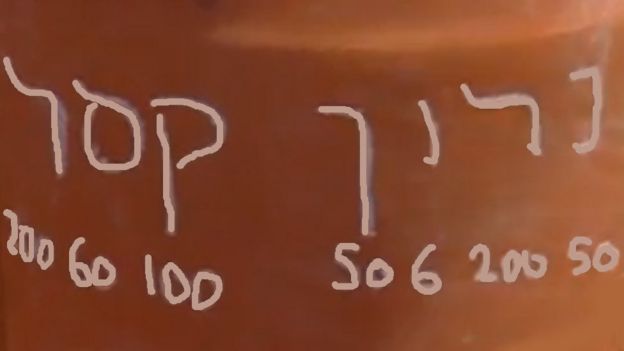 נרון קסר
50 200 6 50 100 60 200